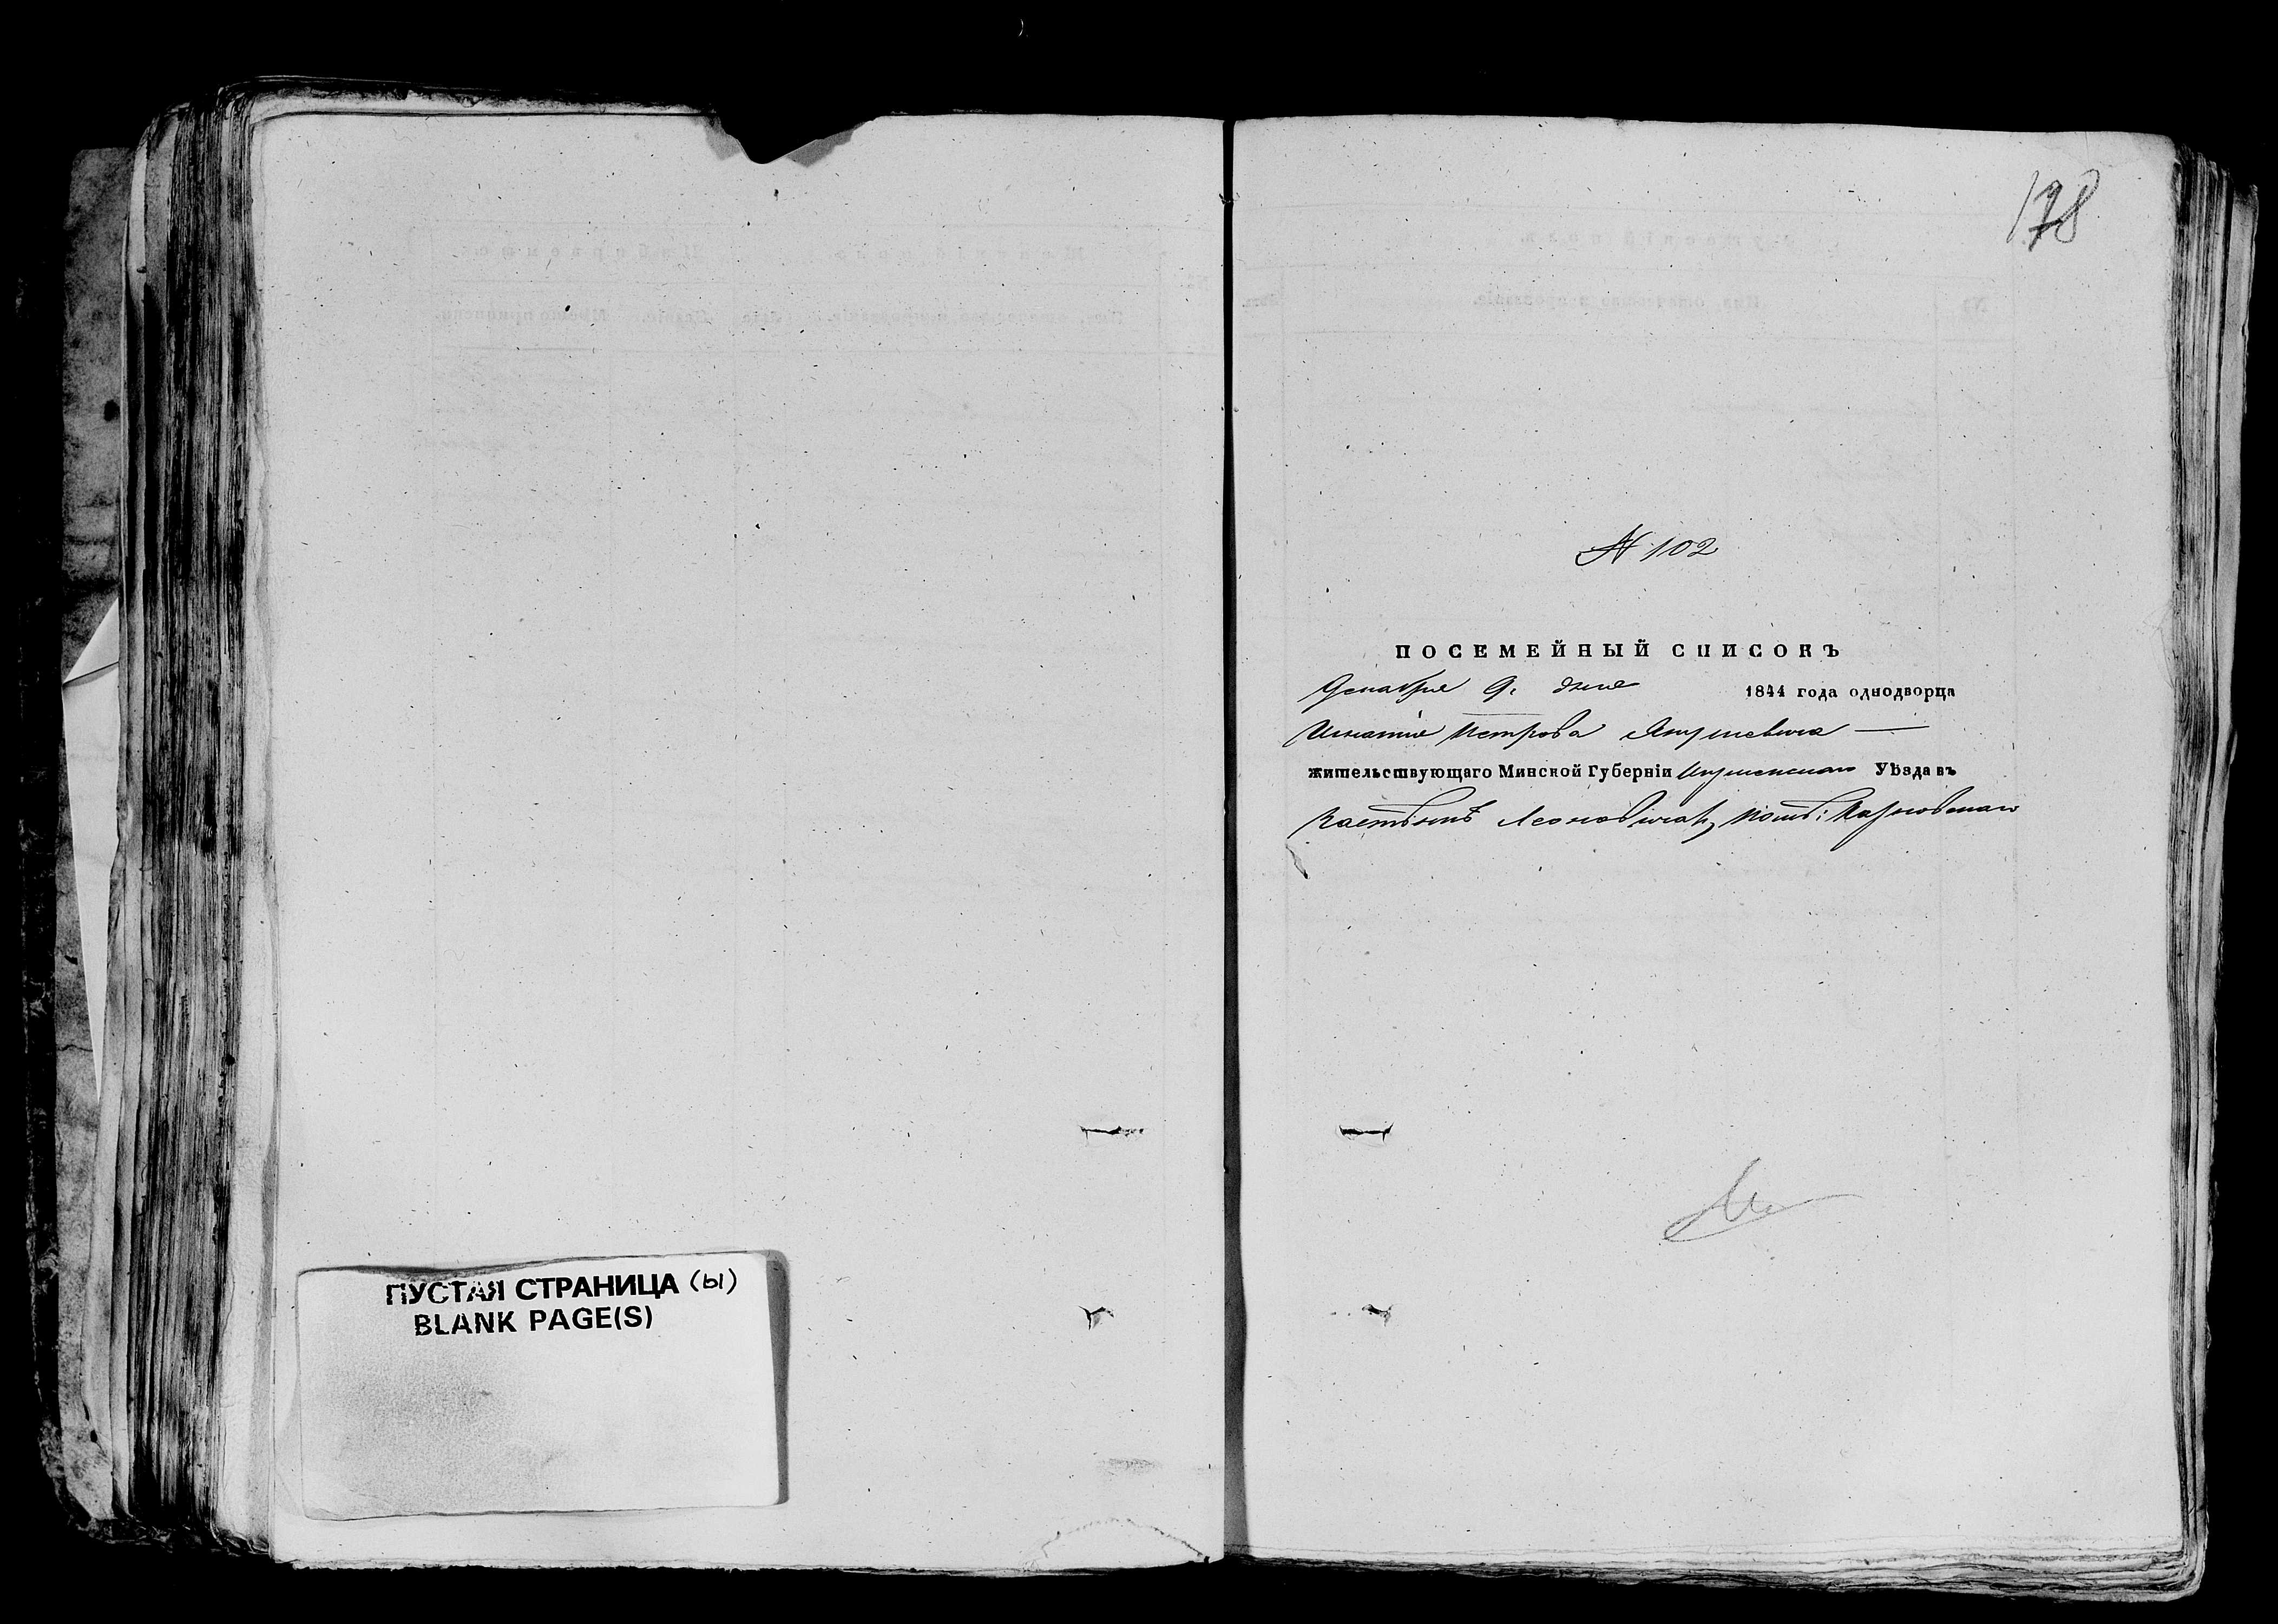 ПУСТАЯ СТРАНИЦА (ы)
BLANK PAGE(S)
178
№ 102
ПОСЕМЕЙНЫЙ СПИСОКЪ
Декабря 9. дня 1844 года однодворца
Игнатія Петрова Янушевича —
жительствующаго Минской Губерніи Игуменскаго Уѣзда въ
Застѣнкѣ Леоновичах, помѣ: